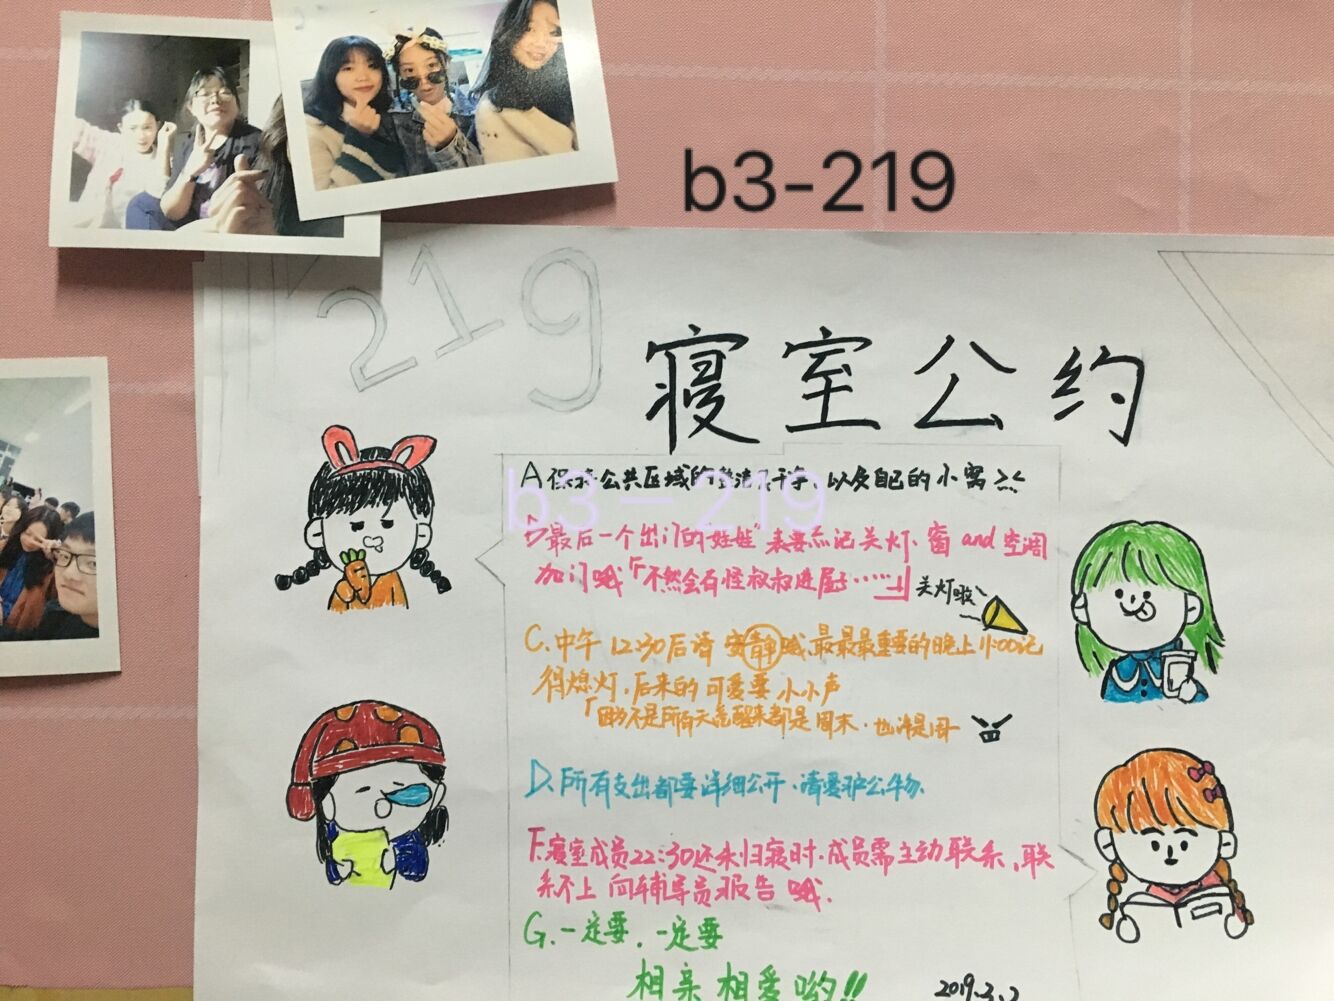 b3-219
219
寝室公约
A保持公共区域的整洁干净,以及自己的小窝
b3-219
最后一个出门的娃娃"表要忘记关灯、窗 and 空调
加门哦「不然会有怪叔叔进屋……」
关灯啦
C.中午12:30后请安静哦,最最最重要的晚上11:00记
得熄灯.后来的可爱要小小声
「因为不是所有天亮醒来都是周末.也许是周一
D.所有支出都要详细公开.请爱护公物.
F.寝室成员22:30还未归寝时.成员需主动联系,联
系不上 向辅导员报告哦.
G.一定要,一定要
相亲相爱哟!!
2019.3.2